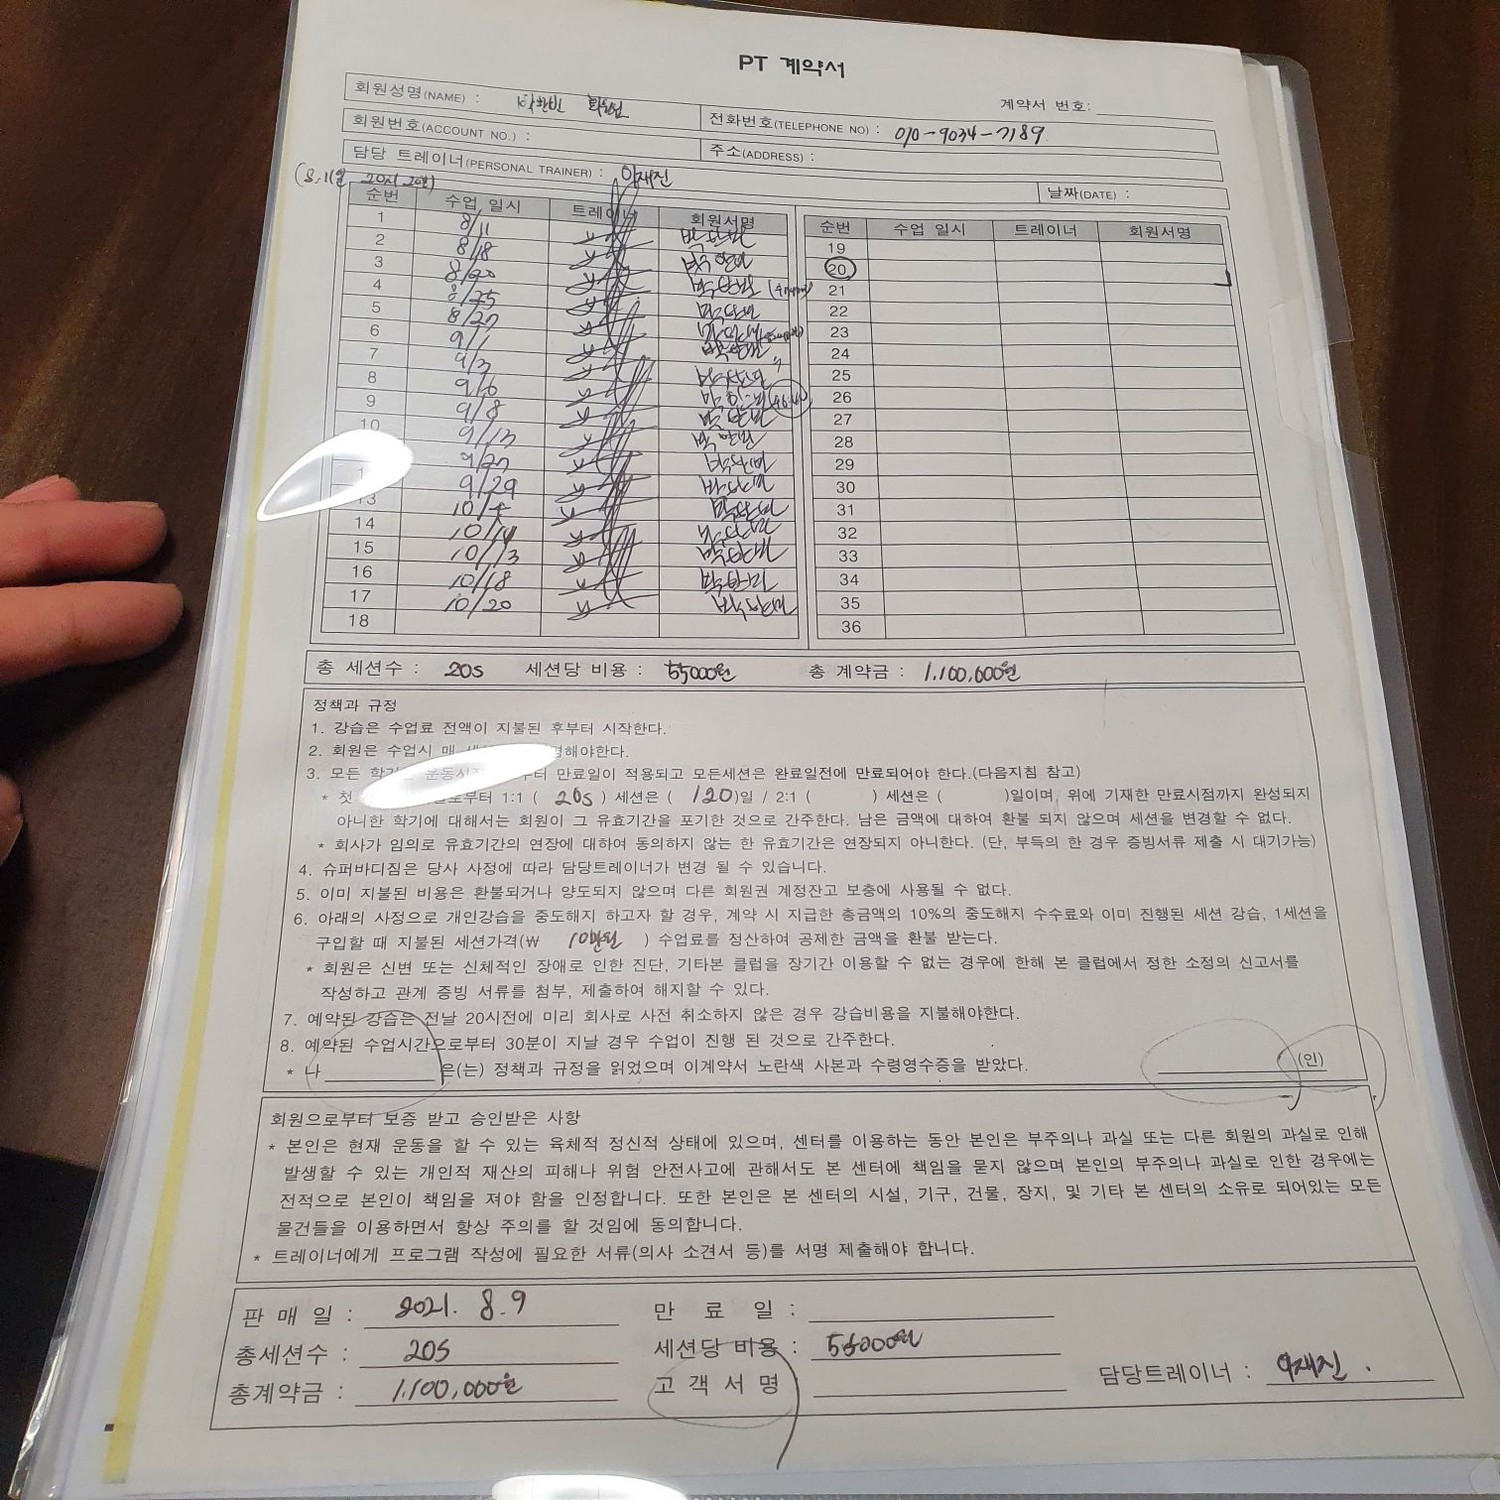 PT 계약서
계약서 번호:
회원성명(NAME) :
전화번호(TELEPHONE NO) : 010-9034-7189
회원번호(ACCOUNT NO.) :
주소(ADDRESS) :
담당 트레이너(PERSONAL TRAINER) : 이재진
날짜(DATE) :
순번 수업 일시 트레이너 회원서명 순번 수업 일시 트레이너 회원서명
1 8/11 19
2 8/18 20
3 8/20 21
4 8/25 22
5 8/27 23
6 9/1 24
7 9/3 25
8 9/6 26
9 9/8 27
10 9/13 28
9/27 29
9/29 30
13 10/ 31
14 10/14 32
15 10/13 33
16 10/18 34
17 10/20 35
18 36
총 세션수 : 20S 세션당 비용 : 55000원 총 계약금 : 1,100,000원
정책과 규정
1. 강습은 수업료 전액이 지불된 후부터 시작한다.
2. 회원은 수업시 매 명해야한다.
3. 모든 운동시 부터 만료일이 적용되고 모든세션은 완료일전에 만료되어야 한다.(다음지침 참고)
* 첫 로부터 1:1 ( 20S ) 세션은 ( 120 )일 / 2:1 ( ) 세션은 ( )일이며, 위에 기재한 만료시점까지 완성되지
아니한 학기에 대해서는 회원이 그 유효기간을 포기한 것으로 간주한다. 남은 금액에 대하여 환불 되지 않으며 세션을 변경할 수 없다.
* 회사가 임의로 유효기간의 연장에 대하여 동의하지 않는 한 유효기간은 연장되지 아니한다. (단, 부득의 한 경우 증빙서류 제출 시 대기가능)
4. 슈퍼바디짐은 당사 사정에 따라 담당트레이너가 변경 될 수 있습니다.
5. 이미 지불된 비용은 환불되거나 양도되지 않으며 다른 회원권 계정잔고 보충에 사용될 수 없다.
6. 아래의 사정으로 개인강습을 중도해지 하고자 할 경우, 계약 시 지급한 총금액의 10%의 중도해지 수수료와 이미 진행된 세션 강습, 1세션을
구입할 때 지불된 세션가격(₩ 10만원 ) 수업료를 정산하여 공제한 금액을 환불 받는다.
* 회원은 신변 또는 신체적인 장애로 인한 진단, 기타본 클럽을 장기간 이용할 수 없는 경우에 한해 본 클럽에서 정한 소정의 신고서를
작성하고 관계 증빙 서류를 첨부, 제출하여 해지할 수 있다.
7. 예약된 강습은 전날 20시전에 미리 회사로 사전 취소하지 않은 경우 강습비용을 지불해야한다.
8. 예약된 수업시간으로부터 30분이 지날 경우 수업이 진행 된 것으로 간주한다.
* 나 은(는) 정책과 규정을 읽었으며 이계약서 노란색 사본과 수령영수증을 받았다. (인)
회원으로부터 보증 받고 승인받은 사항
* 본인은 현재 운동을 할 수 있는 육체적 정신적 상태에 있으며, 센터를 이용하는 동안 본인은 부주의나 과실 또는 다른 회원의 과실로 인해
발생할 수 있는 개인적 재산의 피해나 위험 안전사고에 관해서도 본 센터에 책임을 묻지 않으며 본인의 부주의나 과실로 인한 경우에는
전적으로 본인이 책임을 져야 함을 인정합니다. 또한 본인은 본 센터의 시설, 기구, 건물, 장지, 및 기타 본 센터의 소유로 되어있는 모든
물건들을 이용하면서 항상 주의를 할 것임에 동의합니다.
* 트레이너에게 프로그램 작성에 필요한 서류(의사 소견서 등)를 서명 제출해야 합니다.
판 매 일 : 2021. 8. 9 만 료 일 :
총세션수 : 20S 세션당 비용 : 55000원
총계약금 : 1,100,000원 고 객 서 명 담당트레이너 : 이재진.